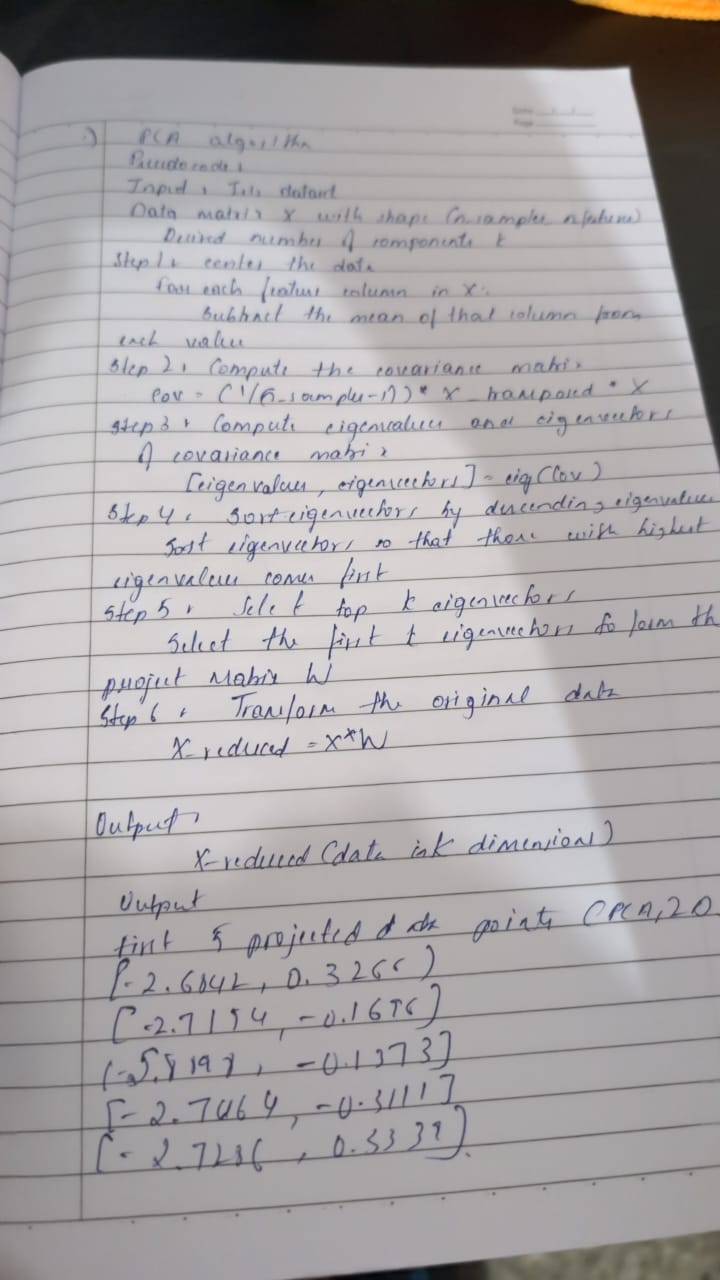 1) PCA algorithm
Pseudocode:
Input: Iris dataset
Data matrix X with shape (n_samples, n_features)
Desired number of components k
Step 1: center the data
For each feature column in X:
Subtract the mean of that column from
each value
Step 2: Compute the covariance matrix
Cov = (1/(n_samples-1)) * X_transposed * X
Step 3: Compute eigenvalues and eigenvectors
of covariance matrix
[eigenvalues, eigenvectors] = eig(Cov)
Step 4: Sort eigenvectors by descending eigenvalues
Sort eigenvectors so that those with highest
eigenvalues comes first
Step 5: Select top k eigenvectors
Select the first k eigenvectors to form th
project Matrix W
Step 6: Transform the original data
X_reduced = X*W
Output:
X-reduced (data in k dimensions)
Output
first 5 projected data points (PCA, 2D
[-2.6842, 0.3266]
[-2.7154, -0.1696]
-0.1373]
[-2.7464, -0.3111]
[-2.7286, 0.3339]